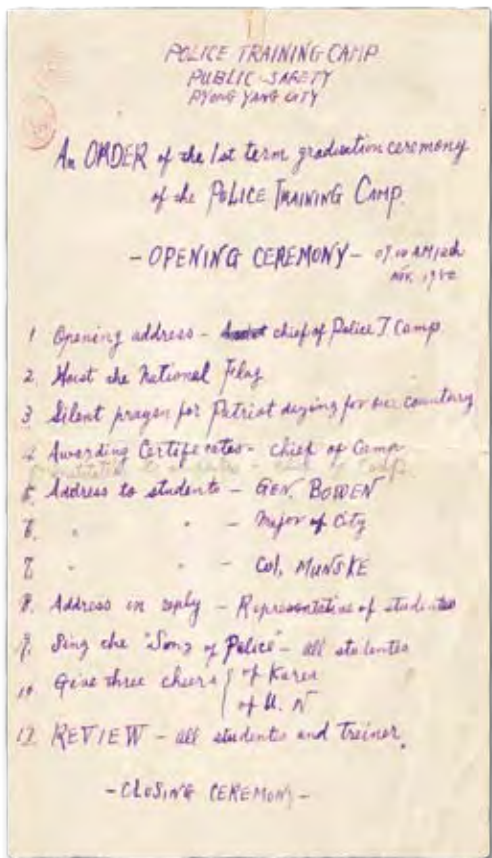 POLICE TRAINING CAMP
PUBLIC SAFETY
PYONG YANG CITY
An ORDER of the 1st term graduation ceremony
of the POLICE TRAINING CAMP.
- OPENING CEREMONY - 09.00 AM
Nov. 1950
1 Opening address - chief of Police T. Camp
2. Hoist the National Flag
3 Silent prayer for Patriot dying for our country
4 Awarding Certificates - chief of Camp
5 Address to students - GEN. BOWEN
6. " " - Major of City
7. " " - Col, MUNSKE
8. Address in reply - Representative of students
9. Sing the "Song of Police" - all students
10 Give three cheers { of Korea
of U. N
12. REVIEW - all students and treiner.
- CLOSING CEREMONY -